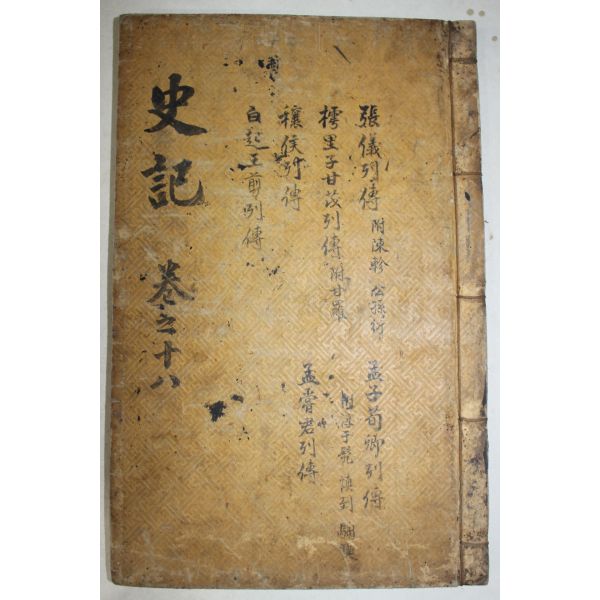 史記 卷之十八
張儀列傳 附陳軫 公孫衍
樗里子甘茂列傳 附甘羅
穰侯列傳
白起王翦列傳
孟子荀卿列傳
附淳于髡 慎到 騶奭
孟嘗君列傳